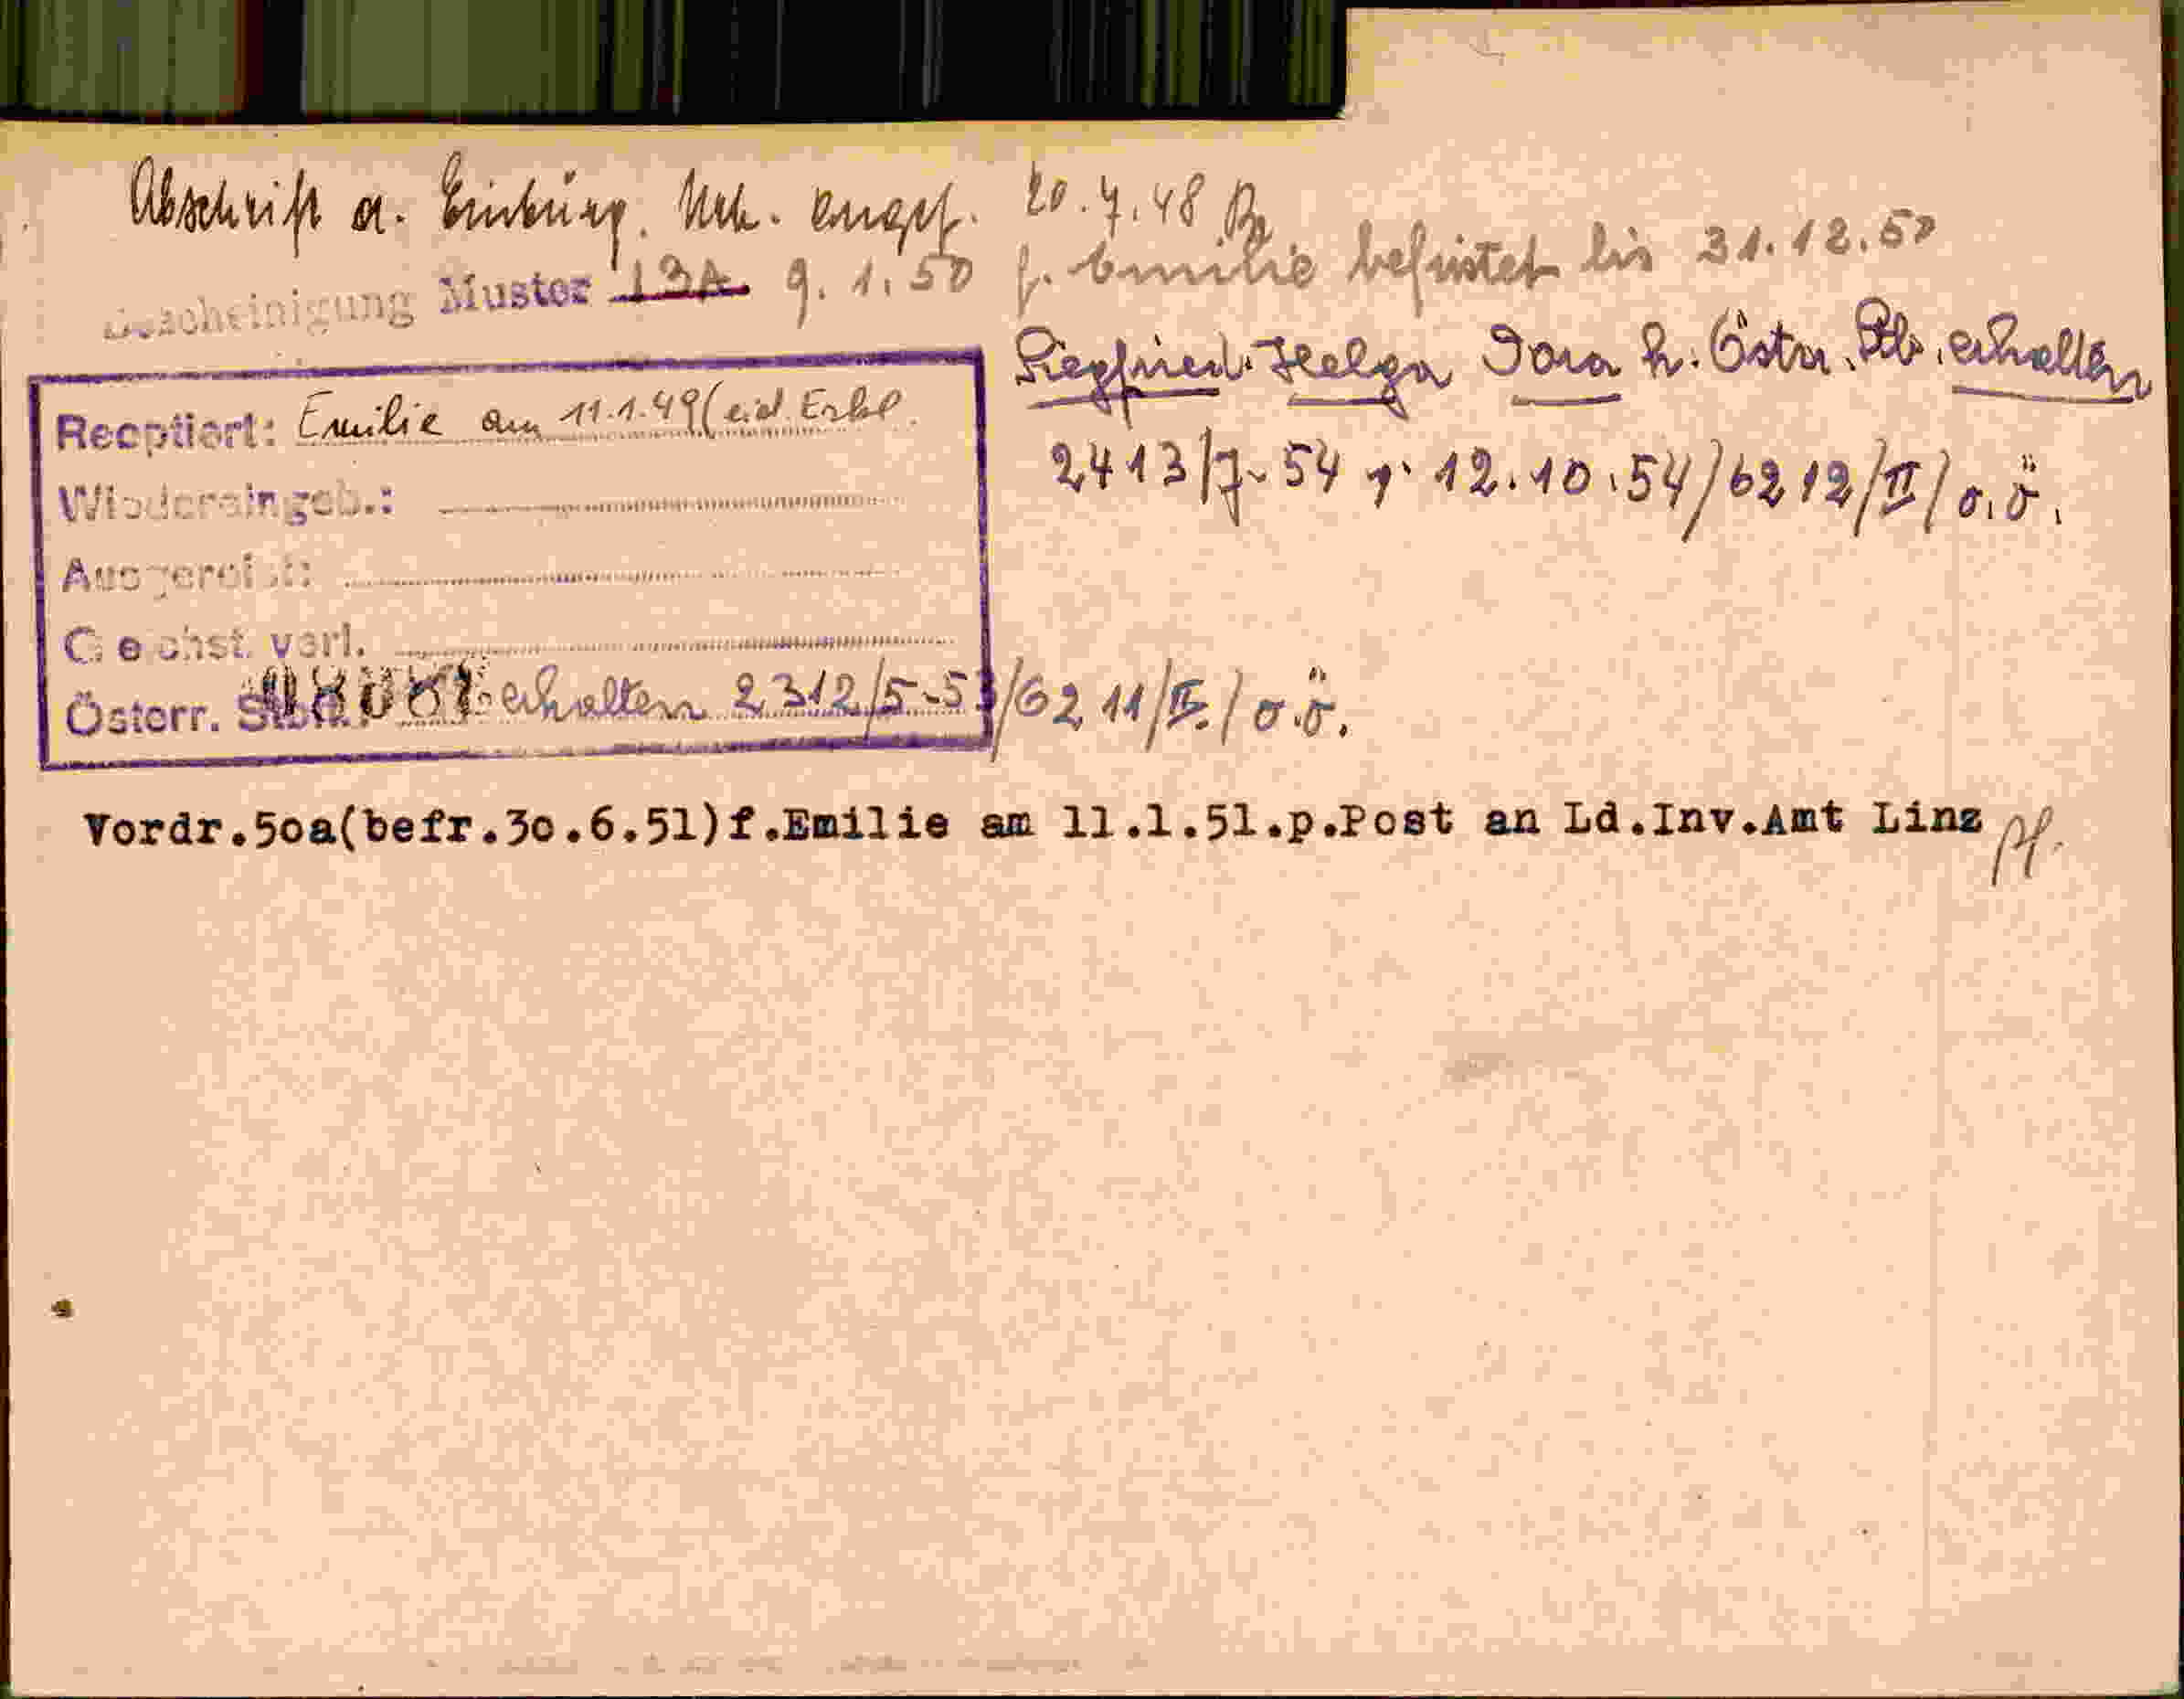 Abschrift a. Einbürg. Urk. angef. 20.7.48
Bescheinigung Muster 13A. 9.1.50 f. Emilie befristet bis 31.12.50
Siegfried. Helga Dora h. Östr. Stb. erhalten
2413/7-54 v. 12.10.54/6212/II/o.ö.
Reoptiert: Emilie am 11.1.49 (eid. Erkl.
Wiedereingeb.:
Ausgereist:
Österr. Stbh. erhalten 2312/5-53/6211/II./o.ö.
Vordr.50a(befr.30.6.51)f.Emilie am 11.1.51.p.Post an Ld.Inv.Amt Linz